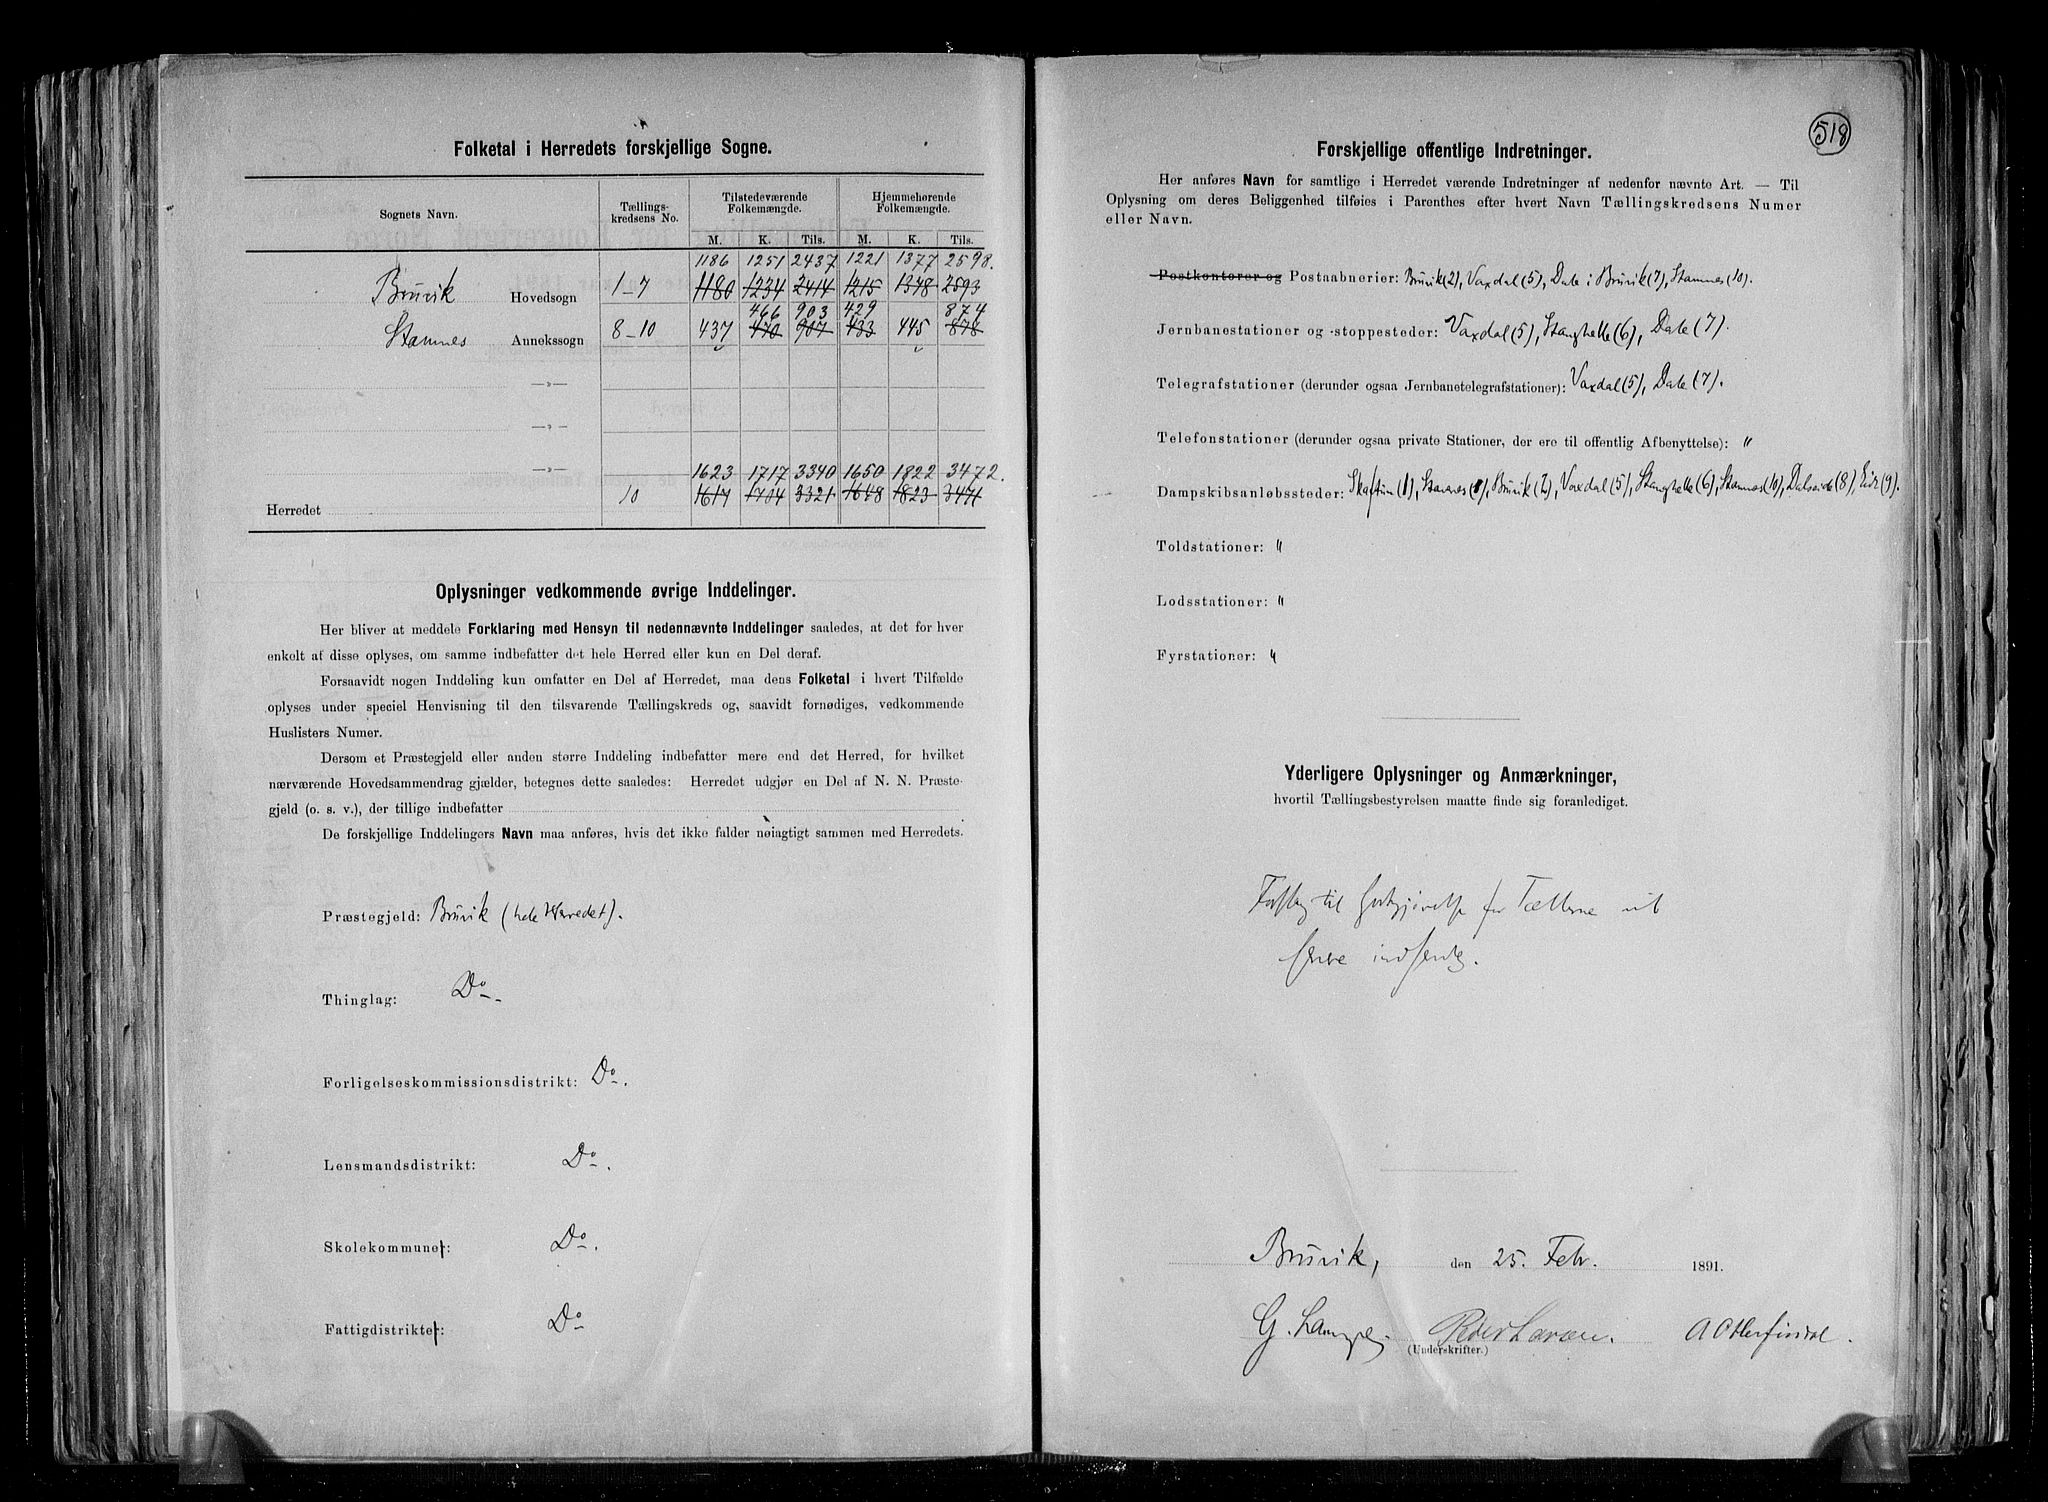 Folketal i Herredets forskjellige Sogne.
Sognets Navn. Tællings-kredsens No. Tilstedeværende Folkemængde. Hjemmehørende Folkemængde.
M. K. Tils. M. K. Tils.
1186 1251 2437 1221 1377 2598.
Bruvik Hovedsogn 1-7 1180 1234 2414 1215 1378 2593
466 903 429 874
Stamnes Annekssogn 8-10 437 470 907 433 445 878
—»—
—»—
—»—
1623 1717 3340 1650 1822 3472.
Herredet 10 1617 1704 3321 1648 1823 3471
Oplysninger vedkommende øvrige Inddelinger.
Her bliver at meddele Forklaring med Hensyn til nedennævnte Inddelinger saaledes, at det for hver
enkelt af disse oplyses, om samme indbefatter det hele Herred eller kun en Del deraf.
Forsaavidt nogen Inddeling kun omfatter en Del af Herredet, maa dens Folketal i hvert Tilfælde
oplyses under speciel Henvisning til den tilsvarende Tællingskreds og, saavidt fornødiges, vedkommende
Huslisters Numer.
Dersom et Præstegjeld eller anden større Inddeling indbefatter mere end det Herred, for hvilket
nærværende Hovedsammendrag gjælder, betegnes dette saaledes: Herredet udgjør en Del af N. N. Præste-
gjeld (o. s. v.), der tillige indbefatter
De forskjellige Inddelingers Navn maa anføres, hvis det ikke falder nøiagtigt sammen med Herredets.
Præstegjeld: Bruvik (hele Herredet).
Thinglag: Do.
Forligelseskommissionsdistrikt: Do.
Lensmandsdistrikt: Do.
Skolekommuner: Do.
Fattigdistrikter: Do
518
Forskjellige offentlige Indretninger.
Her anføres Navn for samtlige i Herredet værende Indretninger af nedenfor nævnte Art. — Til
Oplysning om deres Beliggenhed tilføies i Parenthes efter hvert Navn Tællingskredsens Numer
eller Navn.
Postkontorer og Postaabnerier: Bruvik (2), Vaxdal (5), Dale i Bruvik (7), Stamnes (10).
Jernbanestationer og -stoppesteder: Vaxdal (5), Stanghelle (6), Dale (7).
Telegrafstationer (derunder ogsaa Jernbanetelegrafstationer): Vaxdal (5), Dale (7).
Telefonstationer (derunder ogsaa private Stationer, der ere til offentlig Afbenyttelse): "
Dampskibsanløbssteder: (1), (1), Bruvik (2), Vaxdal (5), Stanghelle (6), Stamnes (10), Dalseide (8), Eide (9).
Toldstationer: "
Lodsstationer: "
Fyrstationer: "
Yderligere Oplysninger og Anmærkninger,
hvortil Tællingsbestyrelsen maatte finde sig foranlediget.
Forslag til Godtgjørelse for Tællerne vil
senere indsendes.
Bruvik, den 25. Febr. 1891.
G. Lampe. Larsen. A Otterfindal.
(Underskrifter.)